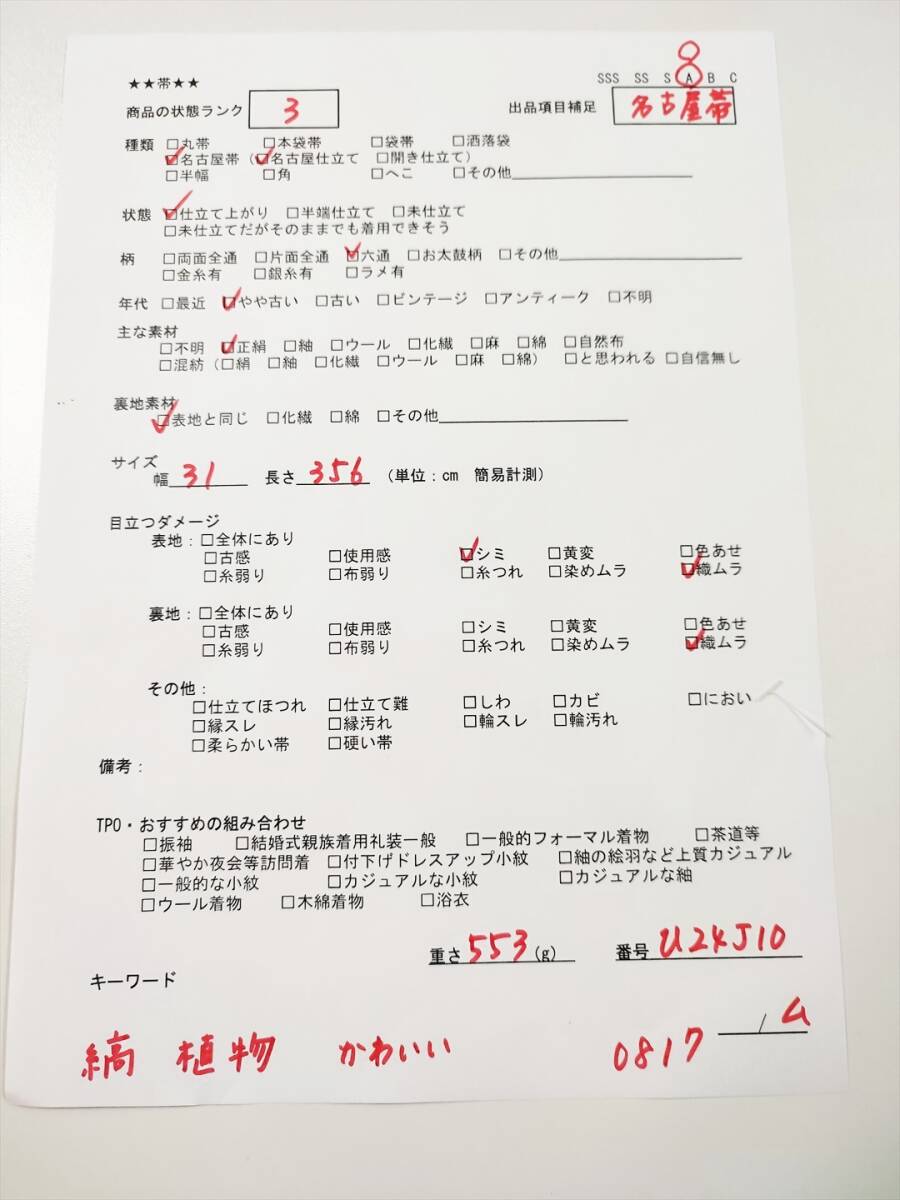 8
SSS SS S A B C
★★帯★★
商品の状態ランク 3 出品項目補足 名古屋帯
種類 □丸帯 □本袋帯 □袋帯 □洒落袋
☑名古屋帯（☑名古屋仕立て □開き仕立て）
□半幅 □角 □へこ □その他
状態 ☑仕立て上がり □半端仕立て □未仕立て
□未仕立てだがそのままでも着用できそう
柄 □両面全通 □片面全通 ☑六通 □お太鼓柄 □その他
□金糸有 □銀糸有 □ラメ有
年代 □最近 ☑やや古い □古い □ビンテージ □アンティーク □不明
主な素材
□不明 ☑正絹 □紬 □ウール □化繊 □麻 □綿 □自然布
□混紡（□絹 □紬 □化繊 □ウール □麻 □綿） □と思われる □自信無し
裏地素材
☑表地と同じ □化繊 □綿 □その他
サイズ
幅 31 長さ 356 （単位：cm 簡易計測）
目立つダメージ
表地：□全体にあり
□古感 □使用感 ☑シミ □黄変 □色あせ
□糸弱り □布弱り □糸つれ □染めムラ ☑織ムラ
裏地：□全体にあり
□古感 □使用感 □シミ □黄変 □色あせ
□糸弱り □布弱り □糸つれ □染めムラ ☑織ムラ
その他：
□仕立てほつれ □仕立て難 □しわ □カビ □におい
□縁スレ □縁汚れ □輪スレ □輪汚れ
□柔らかい帯 □硬い帯
備考：
TPO・おすすめの組み合わせ
□振袖 □結婚式親族着用礼装一般 □一般的フォーマル着物 □茶道等
□華やか夜会等訪問着 □付下げドレスアップ小紋 □紬の絵羽など上質カジュアル
□一般的な小紋 □カジュアルな小紋 □カジュアルな紬
□ウール着物 □木綿着物 □浴衣
重さ 553 (g) 番号 U24J10
キーワード
/ ム
縞 植物 かわいい 0817